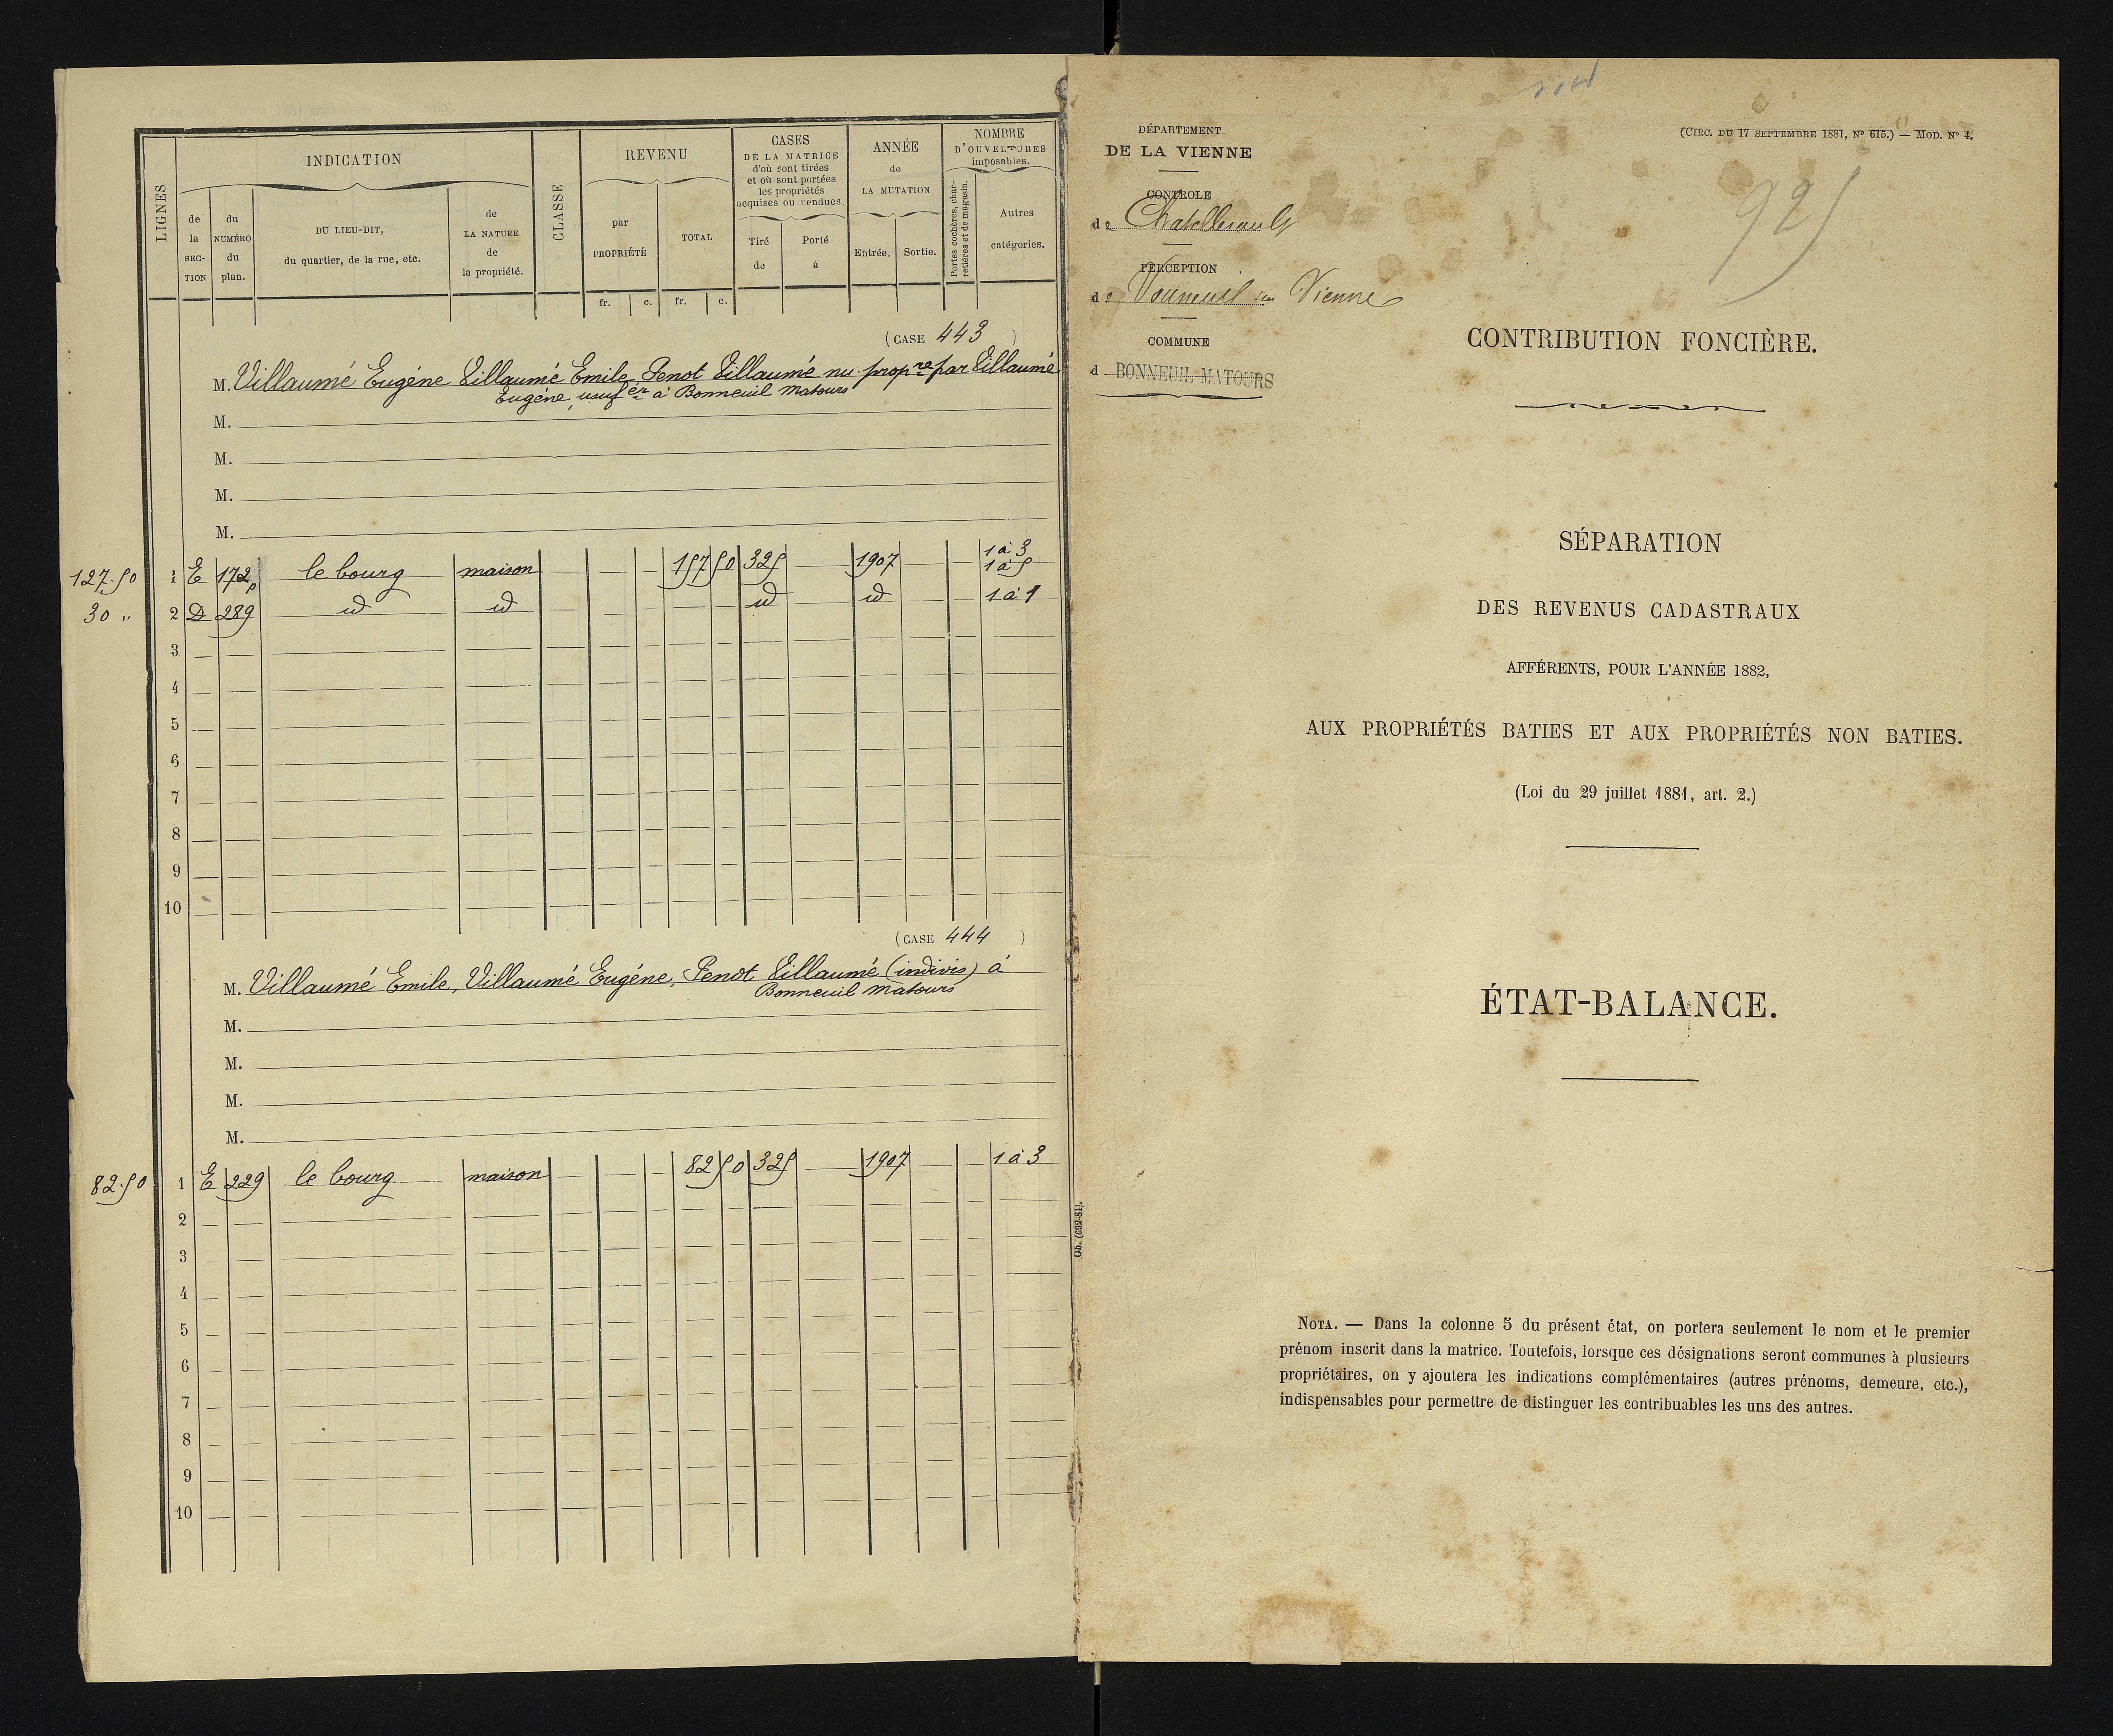 LIGNES
INDICATION
de la SECTION
du NUMÉRO du plan.
DU LIEU-DIT, du quartier, de la rue, etc.
de LA NATURE de la propriété.
CLASSE
REVENU
par PROPRIÉTÉ
TOTAL
fr. c. fr. c.
CASES DE LA MATRICE d'où sont tirées et où sont portées les propriétés acquises ou vendues.
Tiré de
Porté à
ANNÉE de LA MUTATION
Entrée. Sortie.
NOMBRE D'OUVERTURES imposables.
Portes cochères, charretières et de magasin.
Autres catégories.
(CASE 443 )
M. Villaumé Eugéne Villaumé Emile, Penot Villaumé nu-propre par Villaumé
Eugéne, usufer à Bonneuil Matours
M.
M.
M.
M.
1 à 3
127.50 1 E 172p le bourg maison 157 50 325 1907 1 à 5
30 " 2 D 289 id id id id 1 à 1
3
4
5
6
7
8
9
10
(CASE 444 )
M. Villaumé Emile, Villaumé Eugéne, Penot Villaumé (indivis) à
Bonneuil Matours
M.
M.
M.
M.
82.50 1 E 229 le bourg maison 82 50 325 1907 1 à 3
2
3
4
5
6
7
8
9
10
DÉPARTEMENT
DE LA VIENNE
CONTROLE
de Chatellerault
PERCEPTION
de Vouneuil sur Vienne
COMMUNE
d BONNEUIL MATOURS
(CIRC. DU 17 SEPTEMBRE 1881, Nº 615.) — MOD. Nº 4.
925
CONTRIBUTION FONCIÈRE.
SÉPARATION
DES REVENUS CADASTRAUX
AFFÉRENTS, POUR L'ANNÉE 1882,
AUX PROPRIÉTÉS BATIES ET AUX PROPRIÉTÉS NON BATIES.
(Loi du 29 juillet 1881, art. 2.)
ÉTAT-BALANCE.
Ob. (692-81).
NOTA. — Dans la colonne 5 du présent état, on portera seulement le nom et le premier
prénom inscrit dans la matrice. Toutefois, lorsque ces désignations seront communes à plusieurs
propriétaires, on y ajoutera les indications complémentaires (autres prénoms, demeure, etc.),
indispensables pour permettre de distinguer les contribuables les uns des autres.